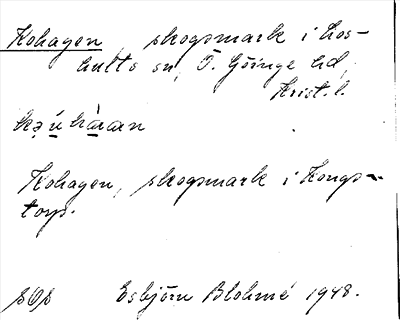 Kohagen, skogsmark i Los-
hults sn, Ö. Göinge hd,
Krist. l.
Kohagen, skogsmark i Kungs-
torp.
Esbjörn Blohmé 1948.